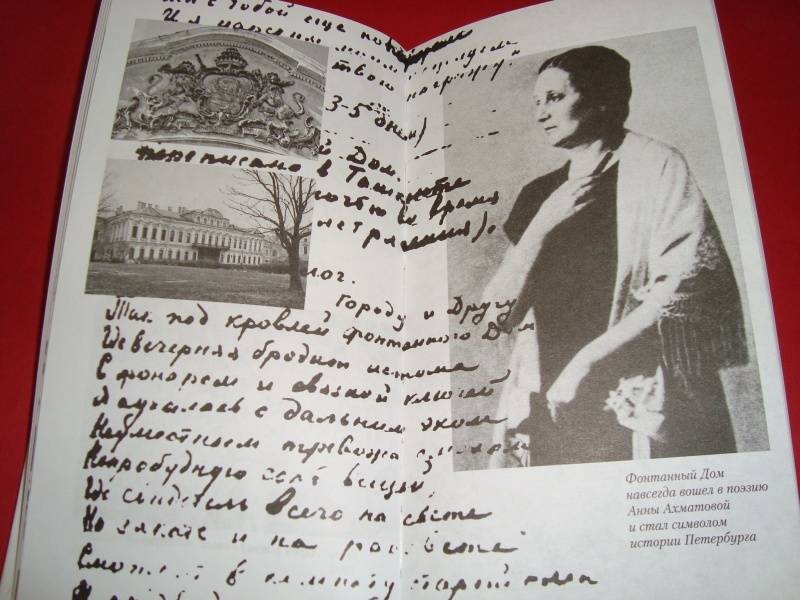 Мы с тобой еще попируем
И я царским моим поцелуем
твою награжу."
3-5 
Дом.
написано в Ташкенте
ночью во время
лог.
Городу и Другу
Так под кровлей Фонтанного Дома
Где вечерняя бродит истома
С фонарем и связкой ключей
Я аукалась с дальним эхом
Неуместным тревожа смехом
Непробудную сонь вещей,
Где свидетель всего на свете
На закате и на рассвете
Смотрит в комнату старый клен
Фонтанный Дом
навсегда вошел в поэзию
Анны Ахматовой
и стал символом
истории Петербурга